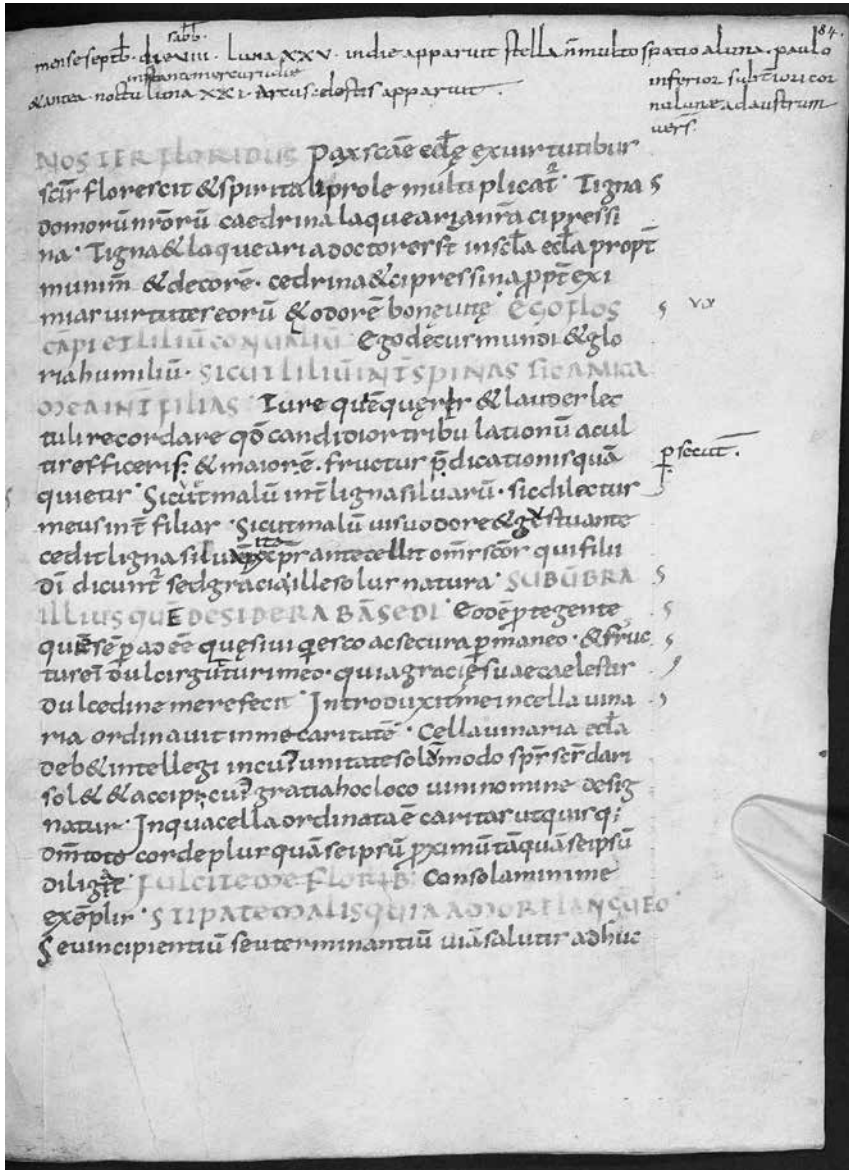 84.
sabb.
mense septb. die VIII. luna XXV. in die apparuit stella n̄ multo spatio a luna. paulo
inferior subtiori cor
nu lunae ad austrum
vers.
& antea noctu luna XXI. Arcus celestis apparuit.
NOSTER FLORIDUS Pax scāe eclę ex uirtutibus
scīs florescit & spiritali prole multiplicat̄ Tigna
domorū nrōrū caedrina laquearia nrā cipressi
na. Tigna & laquearia doctores st̄ in scā ecl̄a propt̄
munim̄ & decorē. cedrina & cipressina ppt̄ exi
mias uirtutes eorū & odorē bonę uitę EGO FLOS
CĀPI ET LILIŪ CONUALIŪ Ego decus mundi & glo
ria humiliū. SICUT LILIŪ INT̄ SPINAS SIC AMICA
MEA INT̄ FILIAS Iure quē queris & laudes lec
tuli recordare qd̄ candidior tribulationū acul
eis efficeris & maiorē fructus p̄dicationis quā
quietis Sicut malū int̄ ligna siluarū. sic dilectus
p secut̄.
meus int̄ filias Sicut malū uisu odore & gustu ante
cedit ligna silu ita antecellit om̄s scōs qui filii
dī dicunt̄ sed gracia ille solus natura SUB ŪBRA
ILLIUS QUĒ DESIDERABĀ SEDI Eodē p̄tegente
quē sēp adeē quęsiui qiesco ac secura pmaneo. & fruc
tus eī dulcis gutturi meo. quia gracię suae caelestis
dulcedine me refecit Introduxit me in cella uina
ria ordinauit in me caritatē Cella uinaria ecl̄a
deb& intellegi in cuī unitate solum̄modo sp̄s scs̄ dari
sol& & accipi. cuī gratia hoc loco uini nomine desig
natur. In qua cella ordinata ē caritas ut quisq;
dm̄ toto corde plus quā se ipsū pximū tāquā se ipsū
diligat FULCITE ME FLORIB. Consolamini me
exēplis STIPATE MALIS QUIA AMORE LANGUEO
Seu incipientiū seu terminantiū uiā salutis adhuc